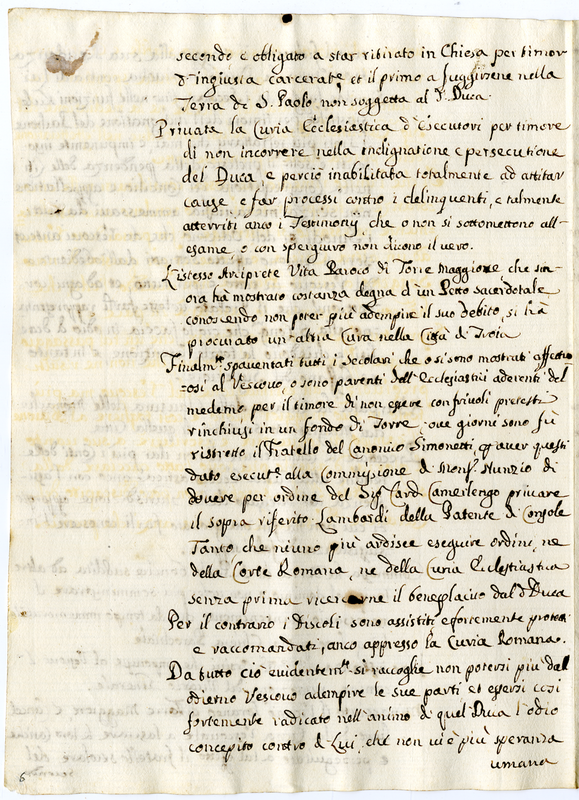 secondo è obligato a star ritirato in Chiesa per timor
d'ingiusta carcerat.e et il primo a fuggirsene nella
Terra di S. Paolo non soggetta al d.o Duca.
Privata la Curia Ecclesiastica d'Esecutori per timore
di non incorrere nella indignatione e persecutione
del Duca e perciò inabilitata totalmente ad attitar
cause e far processi contro i delinquenti, e talmente
atterriti anco i Testimonij, che o non si sottomettono all'
esame, o con spergiuro non dicono il vero.
L'istesso Arciprete Vita Paroco di Torre Maggiore che sin-
ora hà mostrato costanza degna d'un Petto sacerdotale
conoscendo non poter più adempire il suo debito, si hà
procurato un'altra Cura nella Città di Troia
Finalm.te spaventati tutti i secolari che o si sono mostrati affettio
=osi al Vescovo, o sono parenti dell'Ecclesiastici aderenti del
medemo per il timore di non essere con frivoli pretesti
rinchiusi in un fondo di Torre, ove giorni sono fù
ristretto il Fratello del Canonico Simonetti, p aver questi
dato esecut.e alla Commissione di Mons.r Nunzio di
dovere per ordine del Sig.r Card. Camerlengo privare
il sopra riferito Lambardi della Patente di Console
Tanto che niuno più ardisce eseguire ordini, ne
della Corte Romana, ne della Curia Ecclesiastica
senza prima ricercarne il beneplacito dal d.o Duca
Per il contrario i Discoli sono assistiti e fortemente protetti
e raccomandati, anco appresso la Curia Romana.
Da tutto ciò evidentem.te si raccoglie non potersi più dall'
odierno Vescovo adempire le sue parti et essersi così
fortemente radicato nell'animo di quel Duca l'odio
concepito contro di Lui, che non vi è più speranza
umana
6